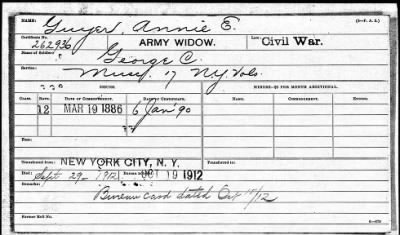 NAME: Guyer, Annie E. (3—F. A. I.)
Certificate No. 262936 ARMY WIDOW. Law: Civil War.
Name of Soldier: George C.
Service: 17 N.Y. Vols.
ISSUE. MINORS—$2 PER MONTH ADDITIONAL.
CLASS. RATE. DATE OF COMMENCEMENT. DATE OF CERTIFICATE. NAME. COMMENCEMENT. ENDING.
12 MAR 19 1886 6 Jan 90
Transferred from NEW YORK CITY, N.Y. Transferred to
Died: Sept. 29- 1912 OCT 19 1912
Remarks: Bureau card dated Oct 15/12
Former Roll No.